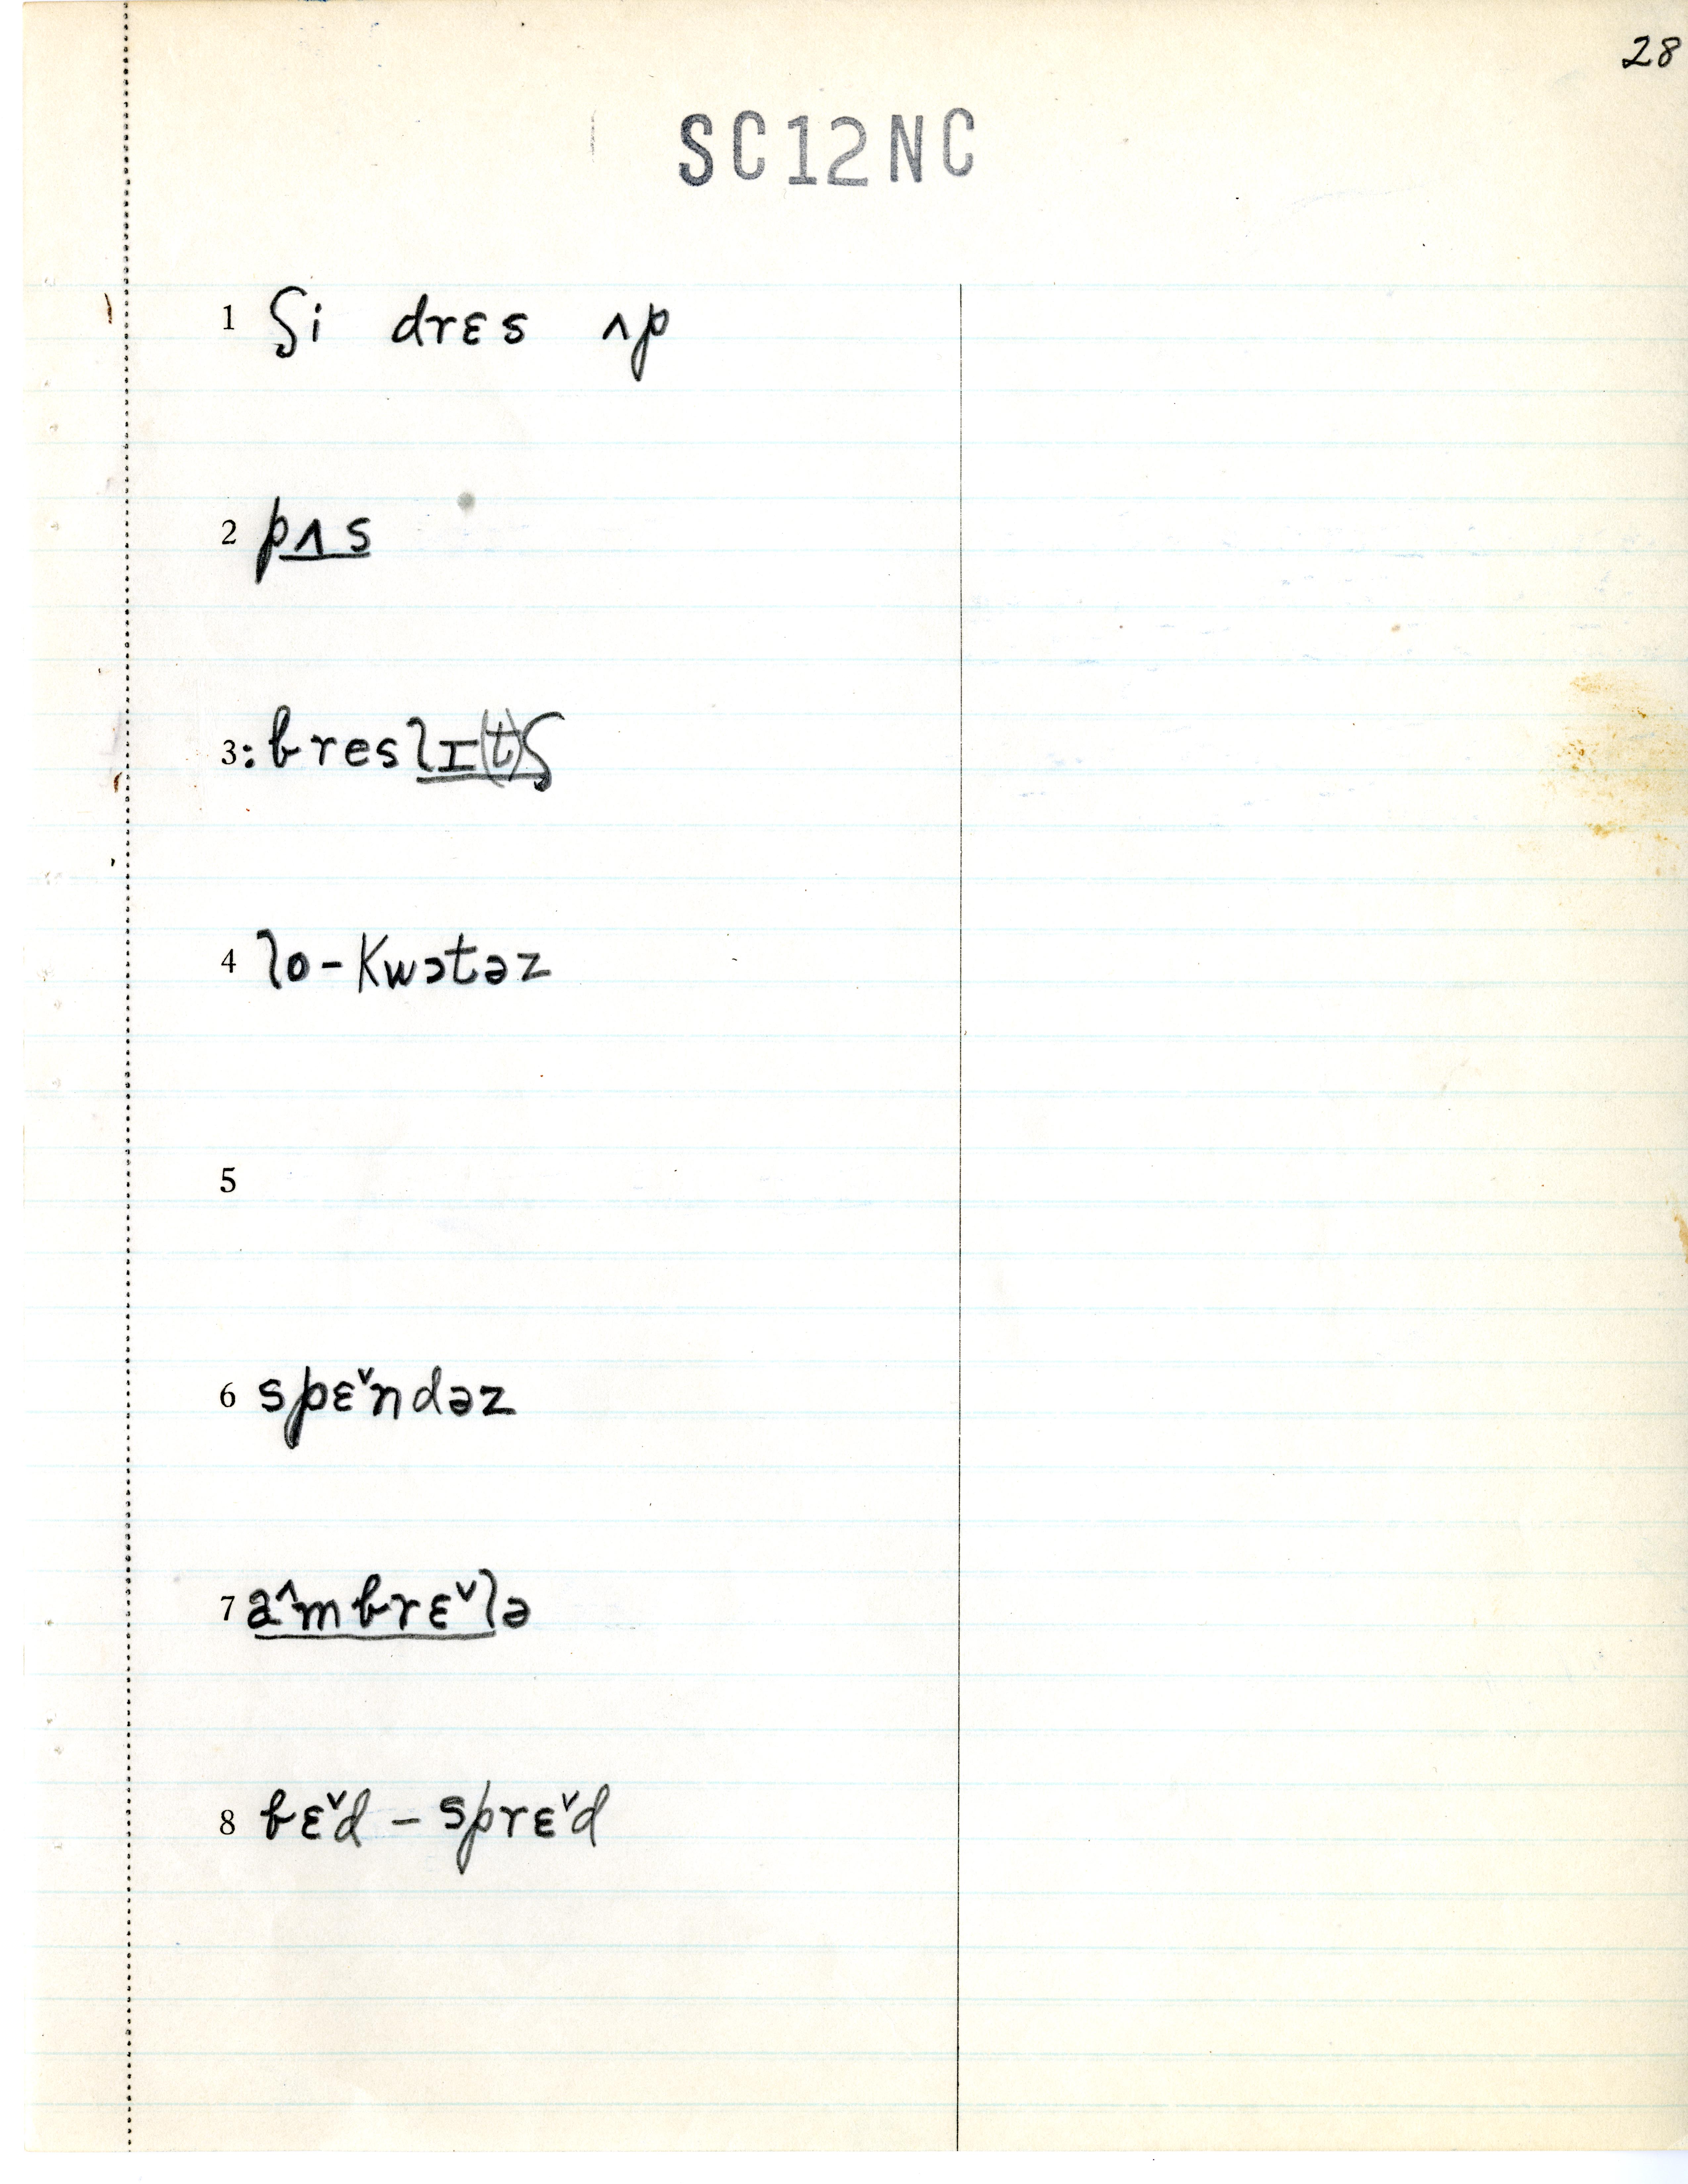 28
SC12NC
1 ʃi drɛs ʌp
2 pʌs
3: breslɪ(t)ʃ
4 lo-kwɔtəz
5
6 spɛ˅ndəz
7 a˄mbrɛ˅lə
8 bɛ˅d - sprɛ˅d